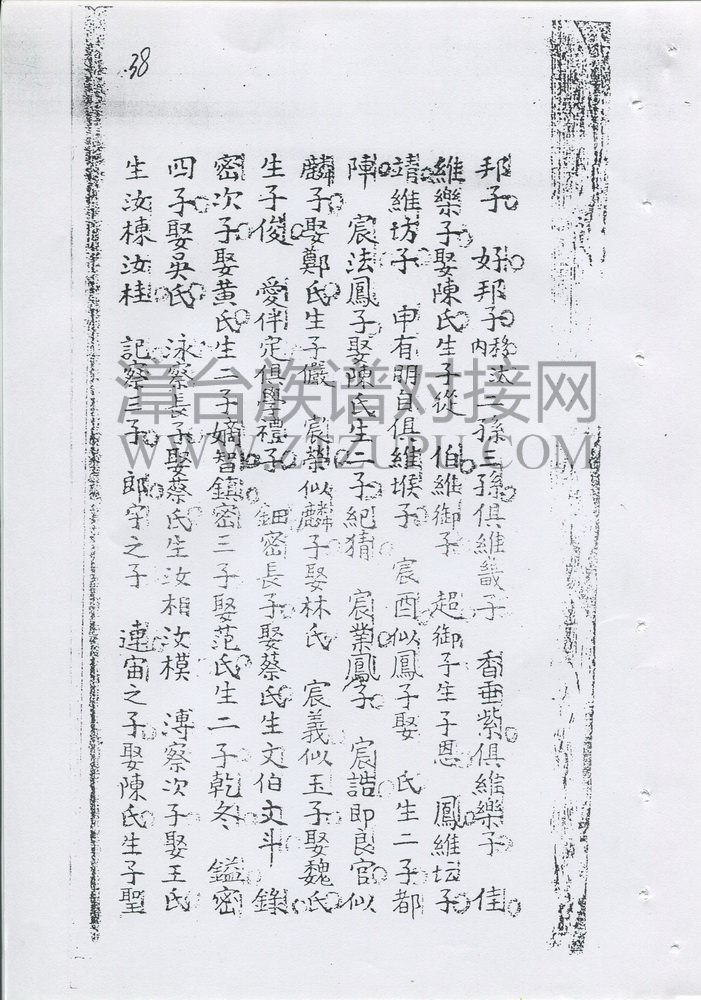 38
邦子 好邦子 二孫三孫俱維畿子 香垂紫俱維樂子 佳
維樂子娶陳氏生子從 伯維御子 超御子生子恩 鳳維坛子
靖維坊子 申有明自俱維堠子 宸酉似鳳子娶 氏生二子都
陣 宸法鳳子娶陳氏生二子紀猜 宸業鳳子 宸誥即良官似
麟子娶鄭氏生子儼 宸榮似麟子娶林氏 宸義似玉子娶魏氏
生子俊 愛伴定俱學禮子 鈿密長子娶蔡氏生文伯文斗 錄
密次子娶黄氏生二子嫡智鎮密三子娶范氏生二子乾冬 鎰密
四子娶吳氏 泳察長子娶蔡氏生汝相汝模 溥察次子娶王氏
生汝棟汝桂 記察三子 郎宇之子 連宙之子娶陳氏生子聖
漳台族谱对接网
WWW.ZTZUPU.COM